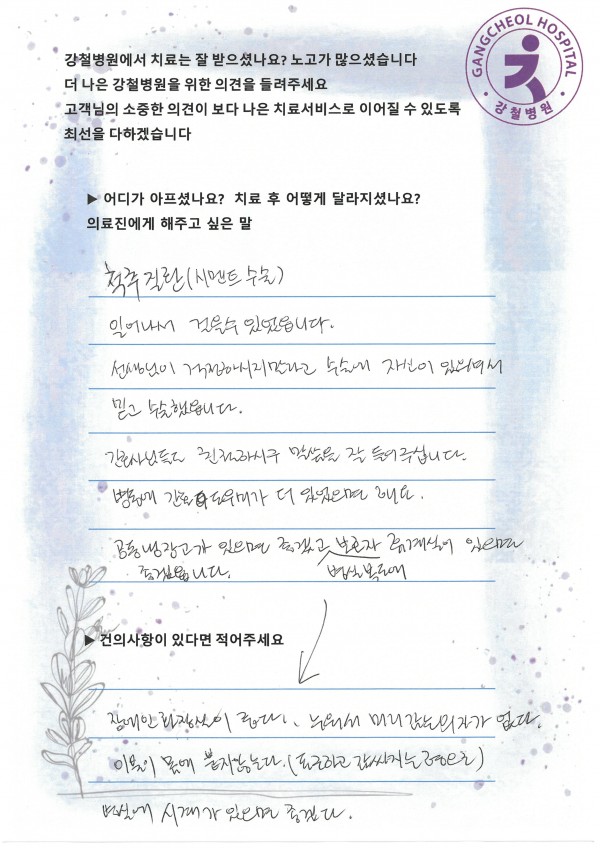 GANGCHEOL HOSPITAL
· 강철병원 ·
강철병원에서 치료는 잘 받으셨나요? 노고가 많으셨습니다
더 나은 강철병원을 위한 의견을 들려주세요
고객님의 소중한 의견이 보다 나은 치료서비스로 이어질 수 있도록
최선을 다하겠습니다
▶ 어디가 아프셨나요? 치료 후 어떻게 달라지셨나요?
의료진에게 해주고 싶은 말
척추질환(시멘트 수술)
일어나서 걸을수 있었습니다.
선생님이 걱정하시지말라고 수술에 자신이 있으셔서
믿고 수술했습니다.
간호사님들도 친절하시구 말씀을 잘 들어주십니다.
병동에 간호 도우미가 더 있었으면 해요.
공동냉장고가 있으면 좋겠고 보호자 휴게실이 있으면
좋겠습니다. 병실복도에
▶ 건의사항이 있다면 적어주세요
장애인 화장실이 좁다. 누워서 머리감는의자가 없다.
이불이 몸에 붙지않는다. (포근하고 감싸지는
병실에 시계가 있으면 좋겠다.